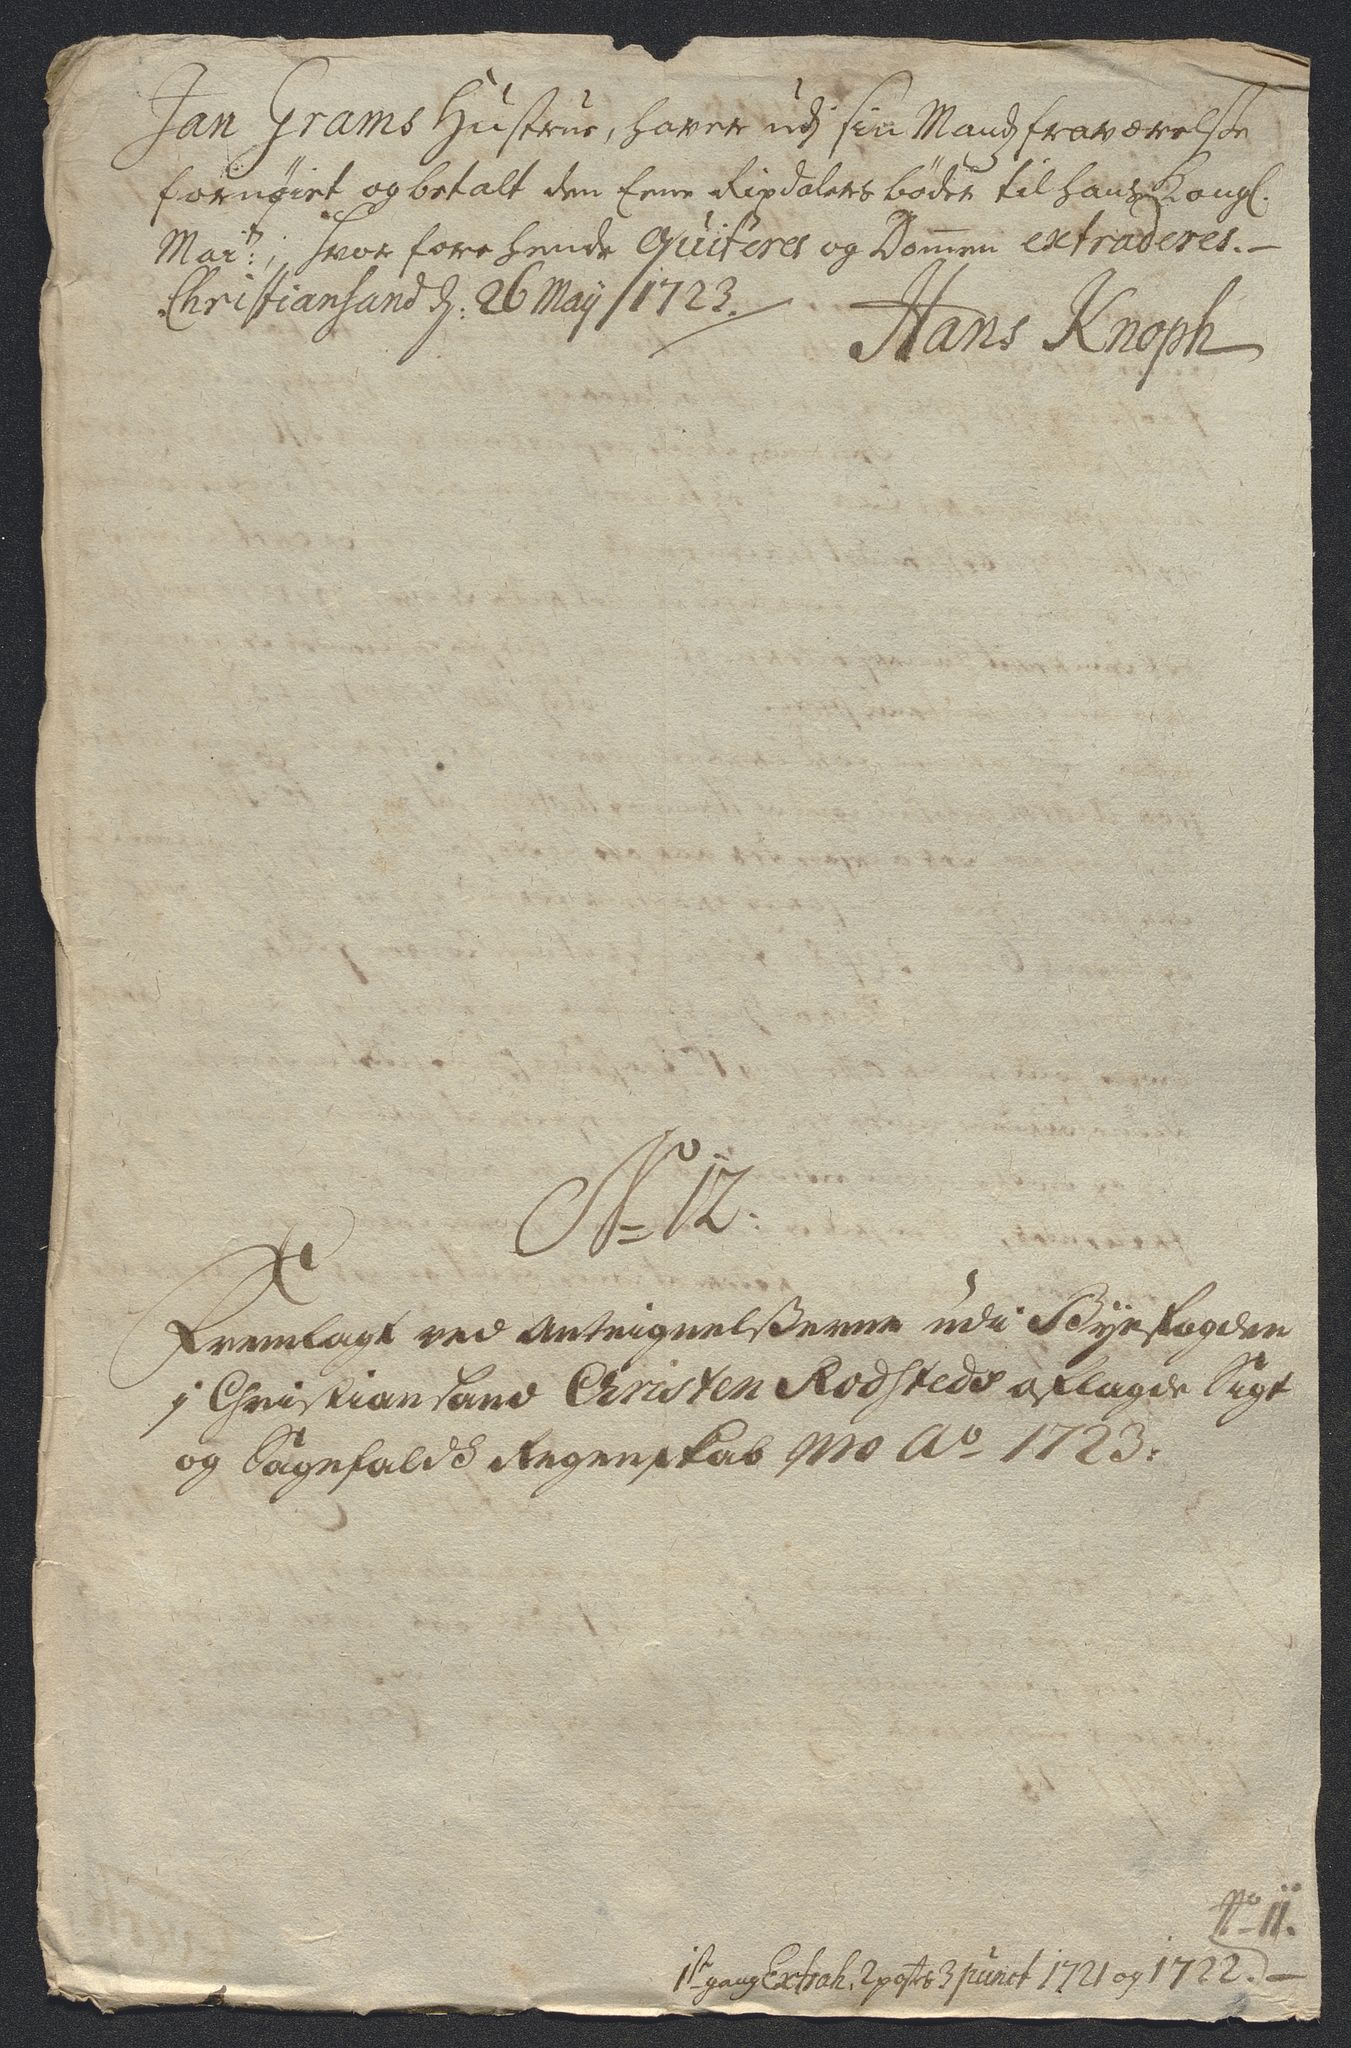 Jan Grams Hustrue, haver udj sin Mandz fraværelse
fornøiet og betalt den Eene Rixdalers bøder til hans Kongl.
Mai:ts, hvor fore hende quiteres og Dom̄en extraderes.—
Christiansand d: 26 Maÿ 1723.
Hans Knoph
No 12:
Fremlagt ved Anteignelsserne udi Bÿefogden
j Christiansand Christen Rodsteds aflagde Sigt
og Sagefalds Regenskab pro Ao 1723:
No 11.
1st gang Extrah. 2 posts 3 punct 1721 og 1722.—